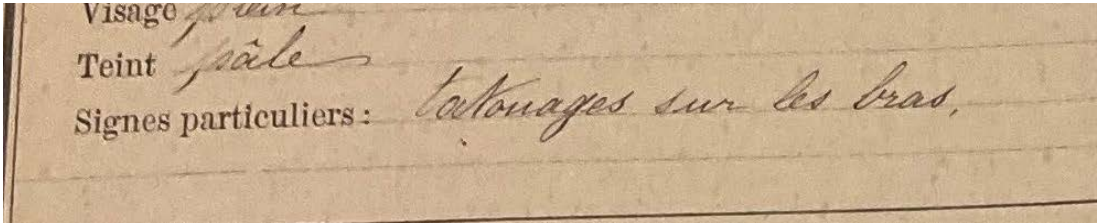 Visage plein
Teint pâle
Signes particuliers : tatouages sur les bras.